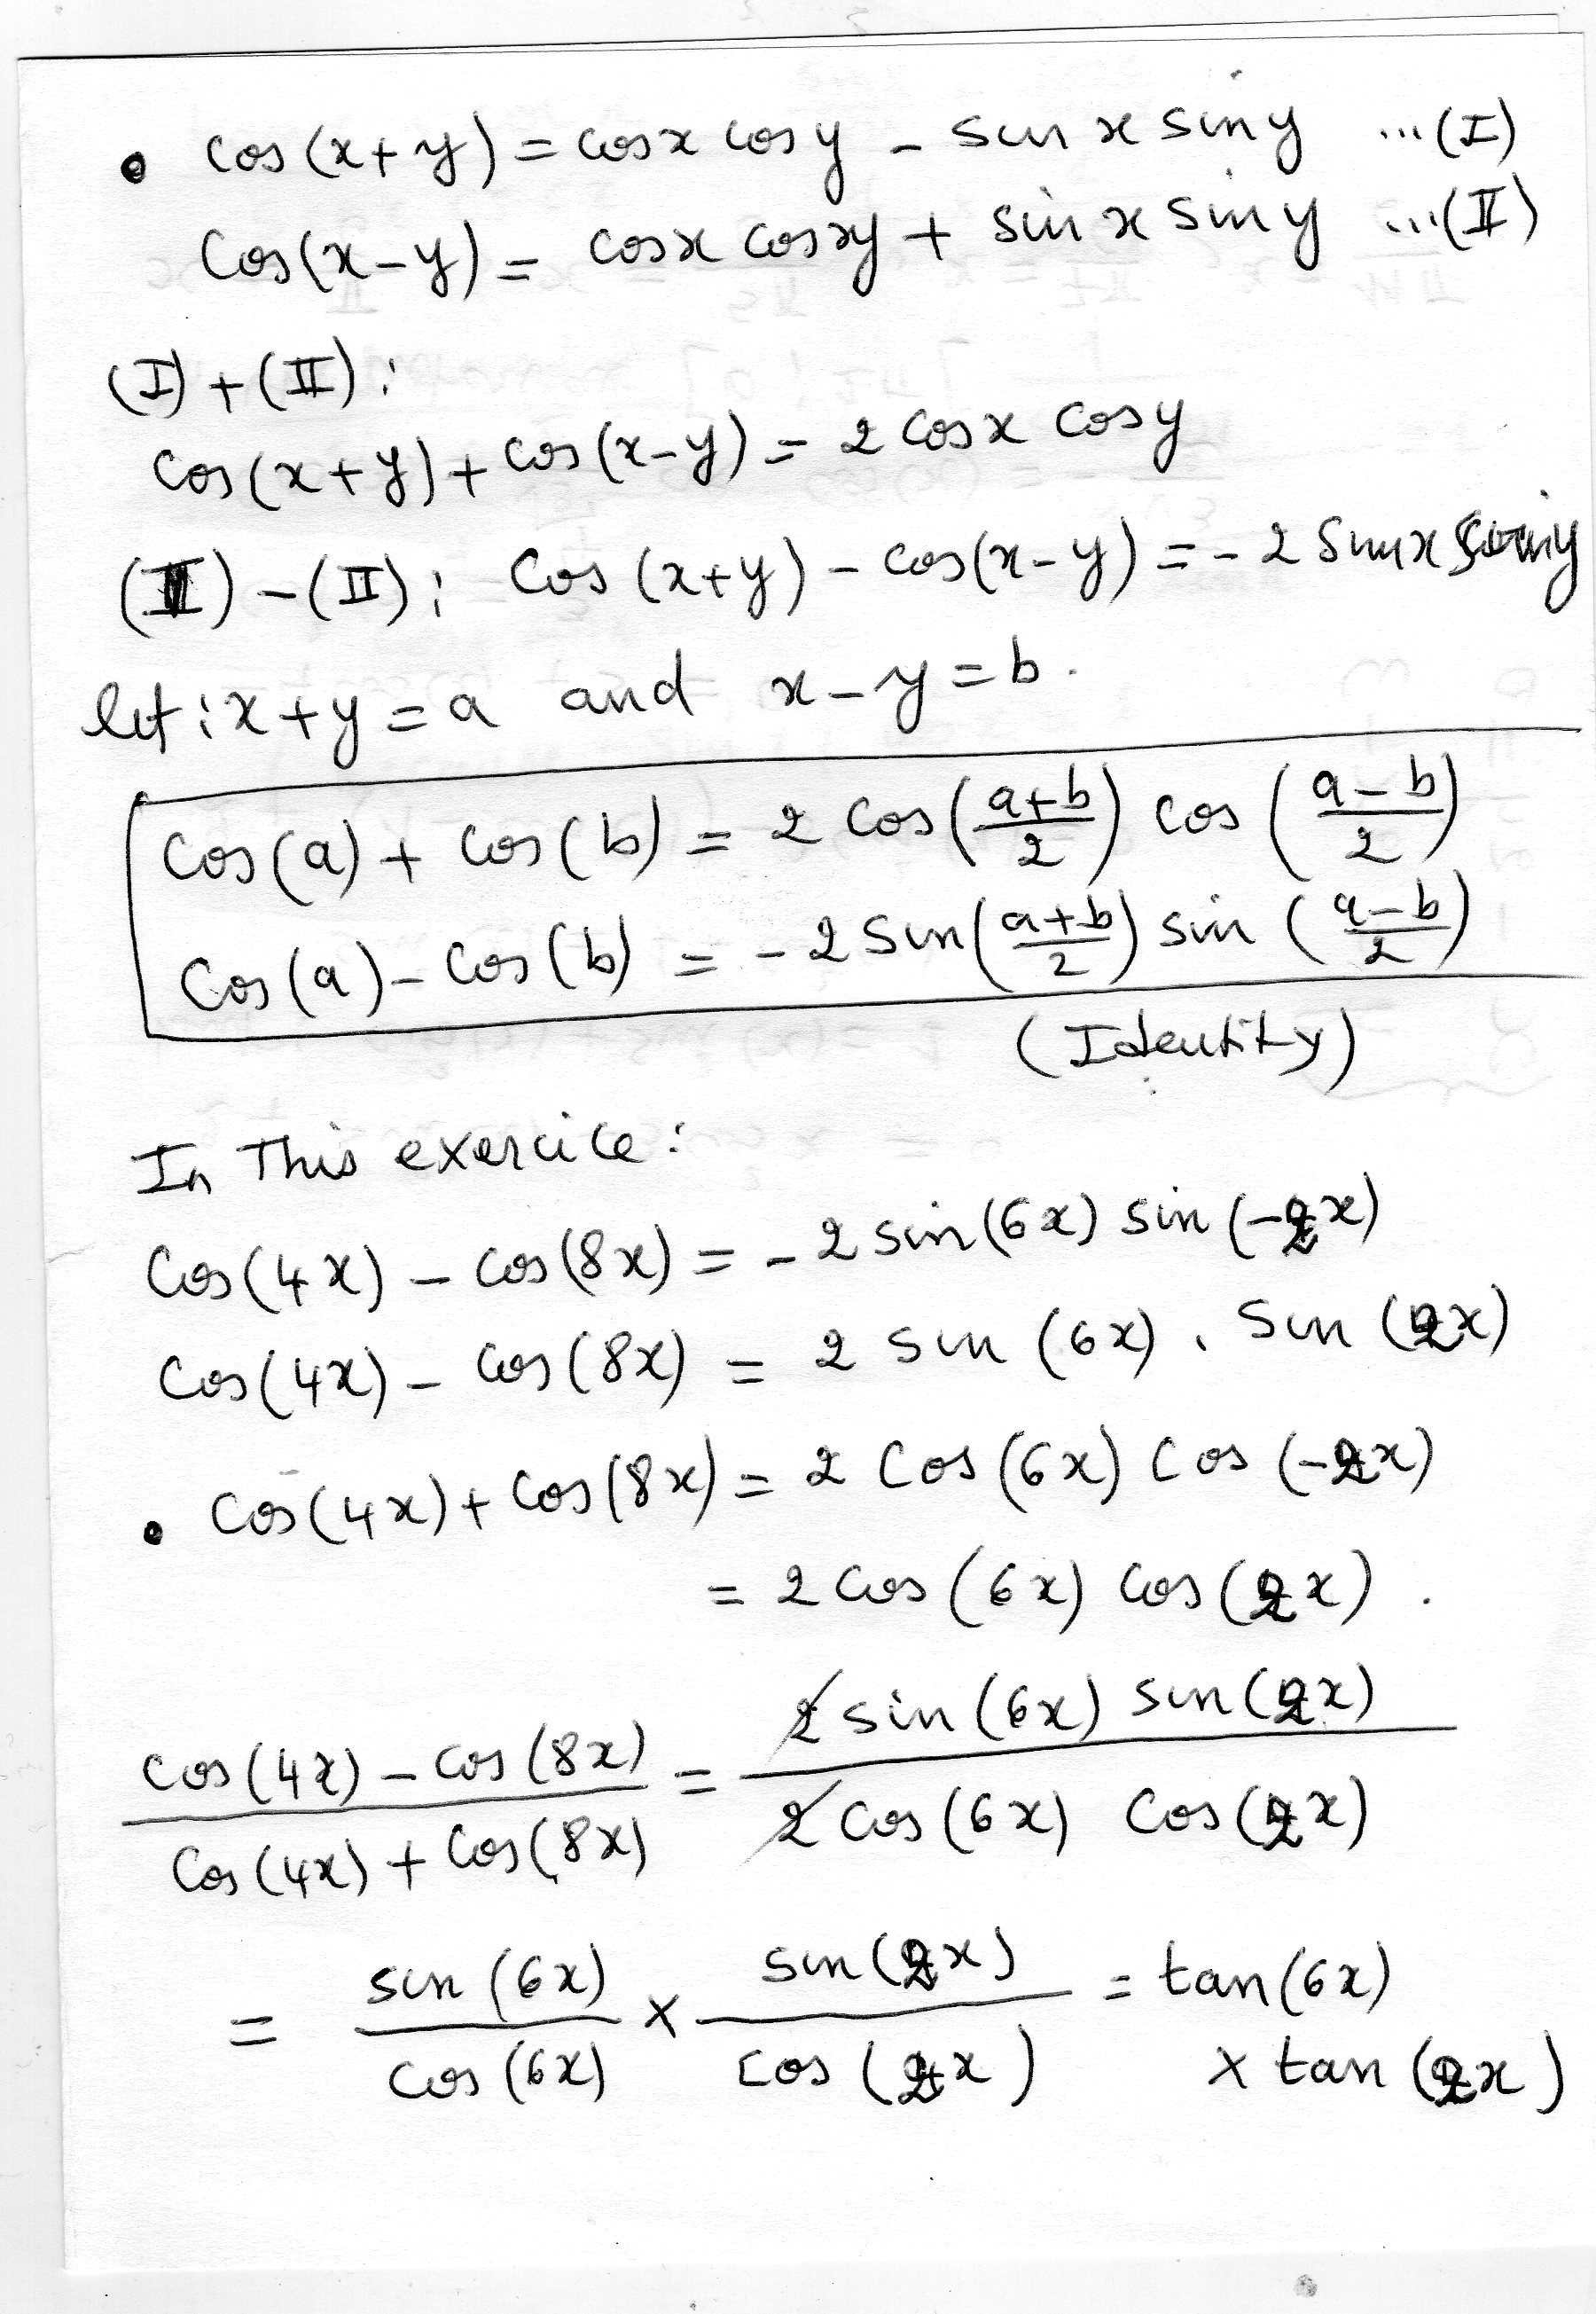 • cos(x+y) = cosx cosy - sin x siny ...(I)
Cos(x-y) = cosx cosy + sin x siny ...(II)
(I) + (II):
Cos(x+y) + cos(x-y) = 2 cosx cosy
(I) - (II): Cos (x+y) - cos(x-y) = - 2 sinx siny
let: x+y = a and x-y = b.
Cos(a) + cos(b) = 2 cos((a+b)/2) cos((a-b)/2)
Cos(a) - cos(b) = -2 sin((a+b)/2) sin((a-b)/2)
(Identity)
In This exercice:
Cos(4x) - cos(8x) = - 2 sin(6x) sin(-2x)
Cos(4x) - cos(8x) = 2 sin (6x) . sin (2x)
• Cos(4x) + cos(8x) = 2 cos(6x) cos (-2x)
= 2 cos (6x) cos (2x).
(cos(4x) - cos(8x))/(cos(4x) + cos(8x)) = (2 sin(6x) sin(2x))/(2 cos(6x) cos(2x))
= sin(6x)/cos(6x) × sin(2x)/cos(2x) = tan(6x)
× tan (2x)